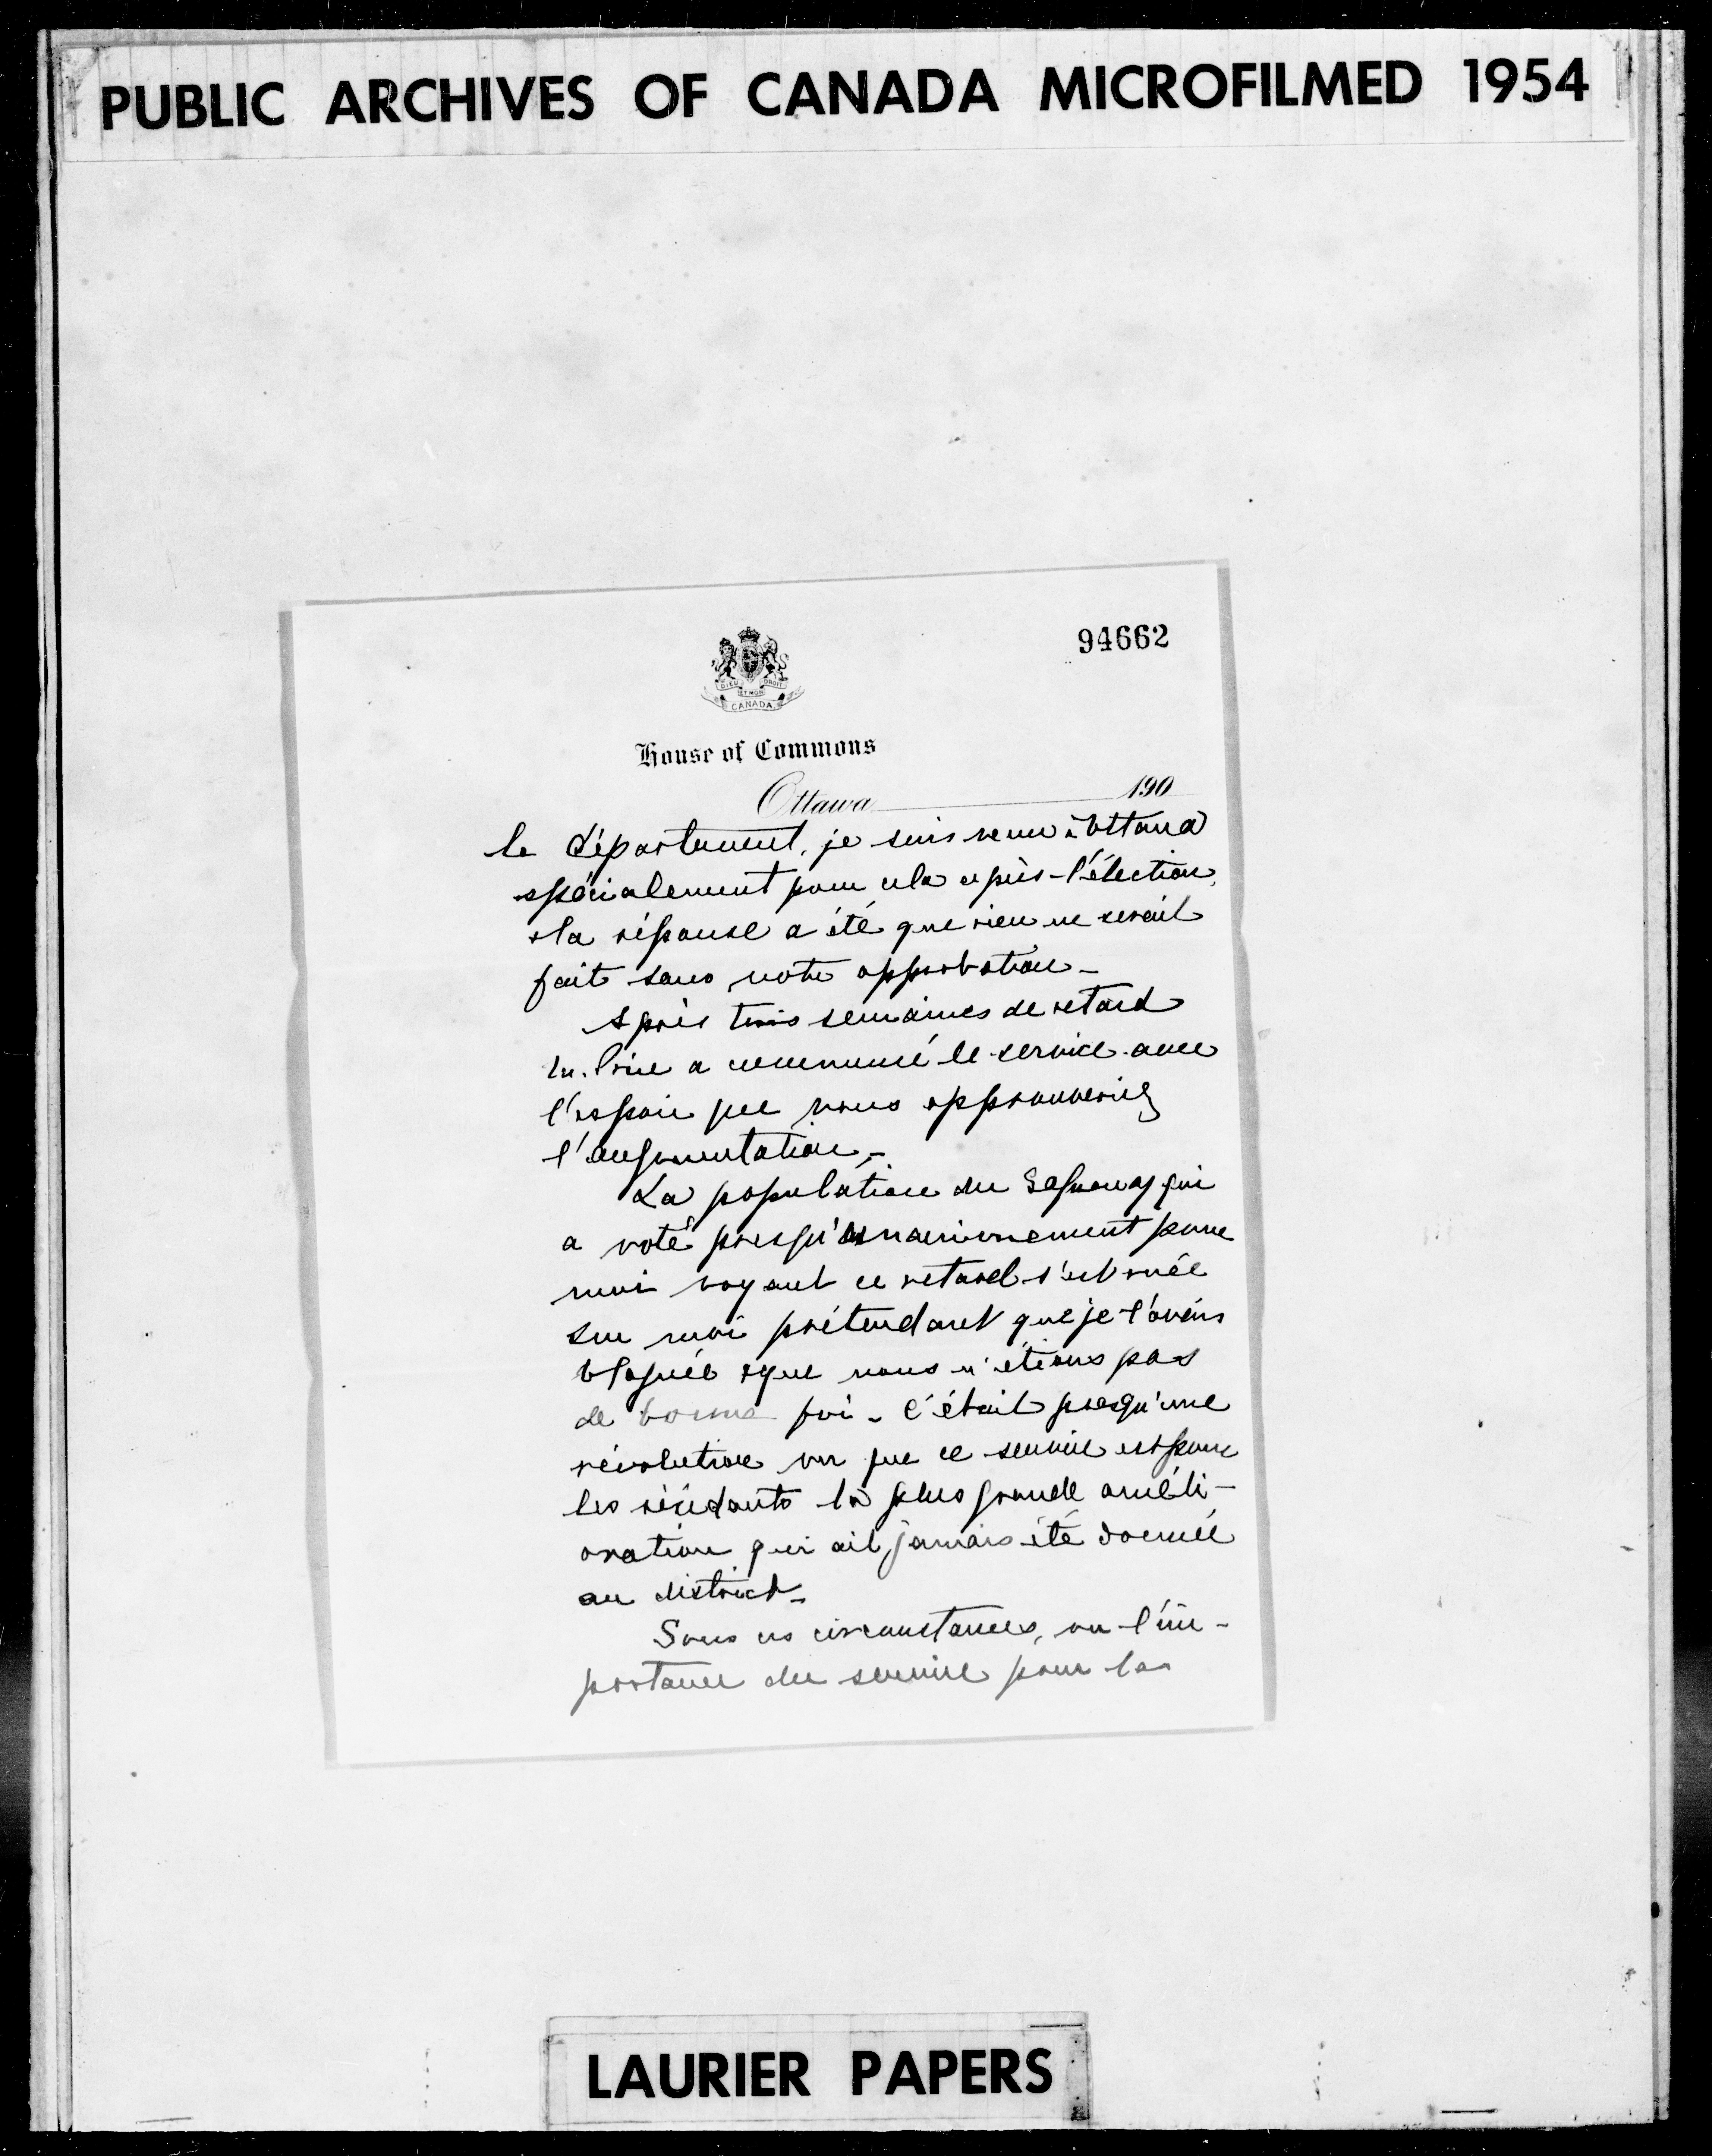 PUBLIC ARCHIVES OF CANADA MICROFILMED 1954
94662
DIEU ET MON DROIT
CANADA
House of Commons
Ottawa 190
le département, je suis venu à Ottawa
spécialement pour cela après l'élection,
& la réponse a été que rien ne serait
fait sans votre approbation -
Après trois semaines de retard
M. Price a commencé le service avec
l'espoir que vous approuveriez
l'augmentation. -
La population du Saguenay qui
a voté presqu'unanimement pour
moi voyant ce retard s'est ruée
sur moi prétendant que je l'avais
blaguée & que nous n'étions pas
de bonne foi - C'était presqu'une
révolution vu que ce service est pour
les résidants la plus grande améli-
oration qui ait jamais été donnée
au district -
Sous ces circonstances, vu l'im-
portance du service pour la
LAURIER PAPERS